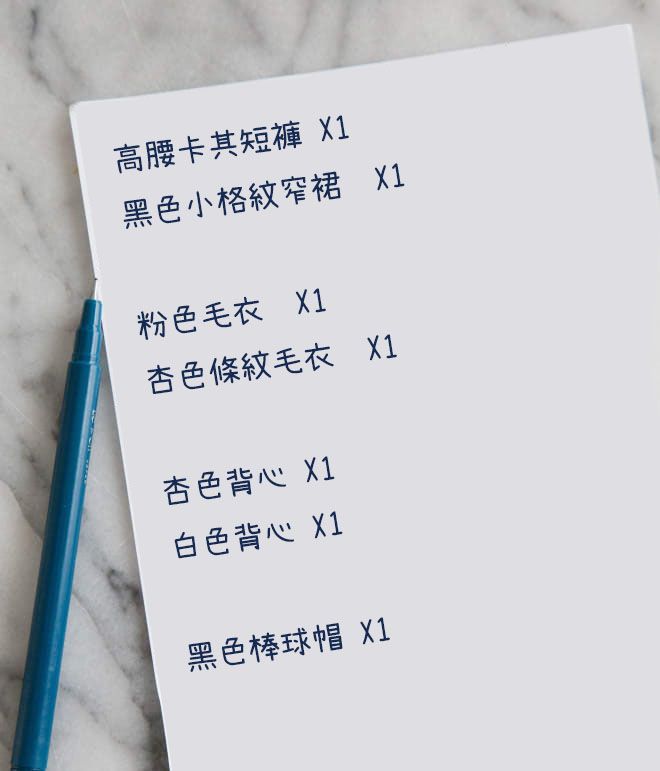 高腰卡其短褲 X1
黑色小格紋窄裙 X1
粉色毛衣 X1
杏色條紋毛衣 X1
杏色背心 X1
白色背心 X1
黑色棒球帽 X1